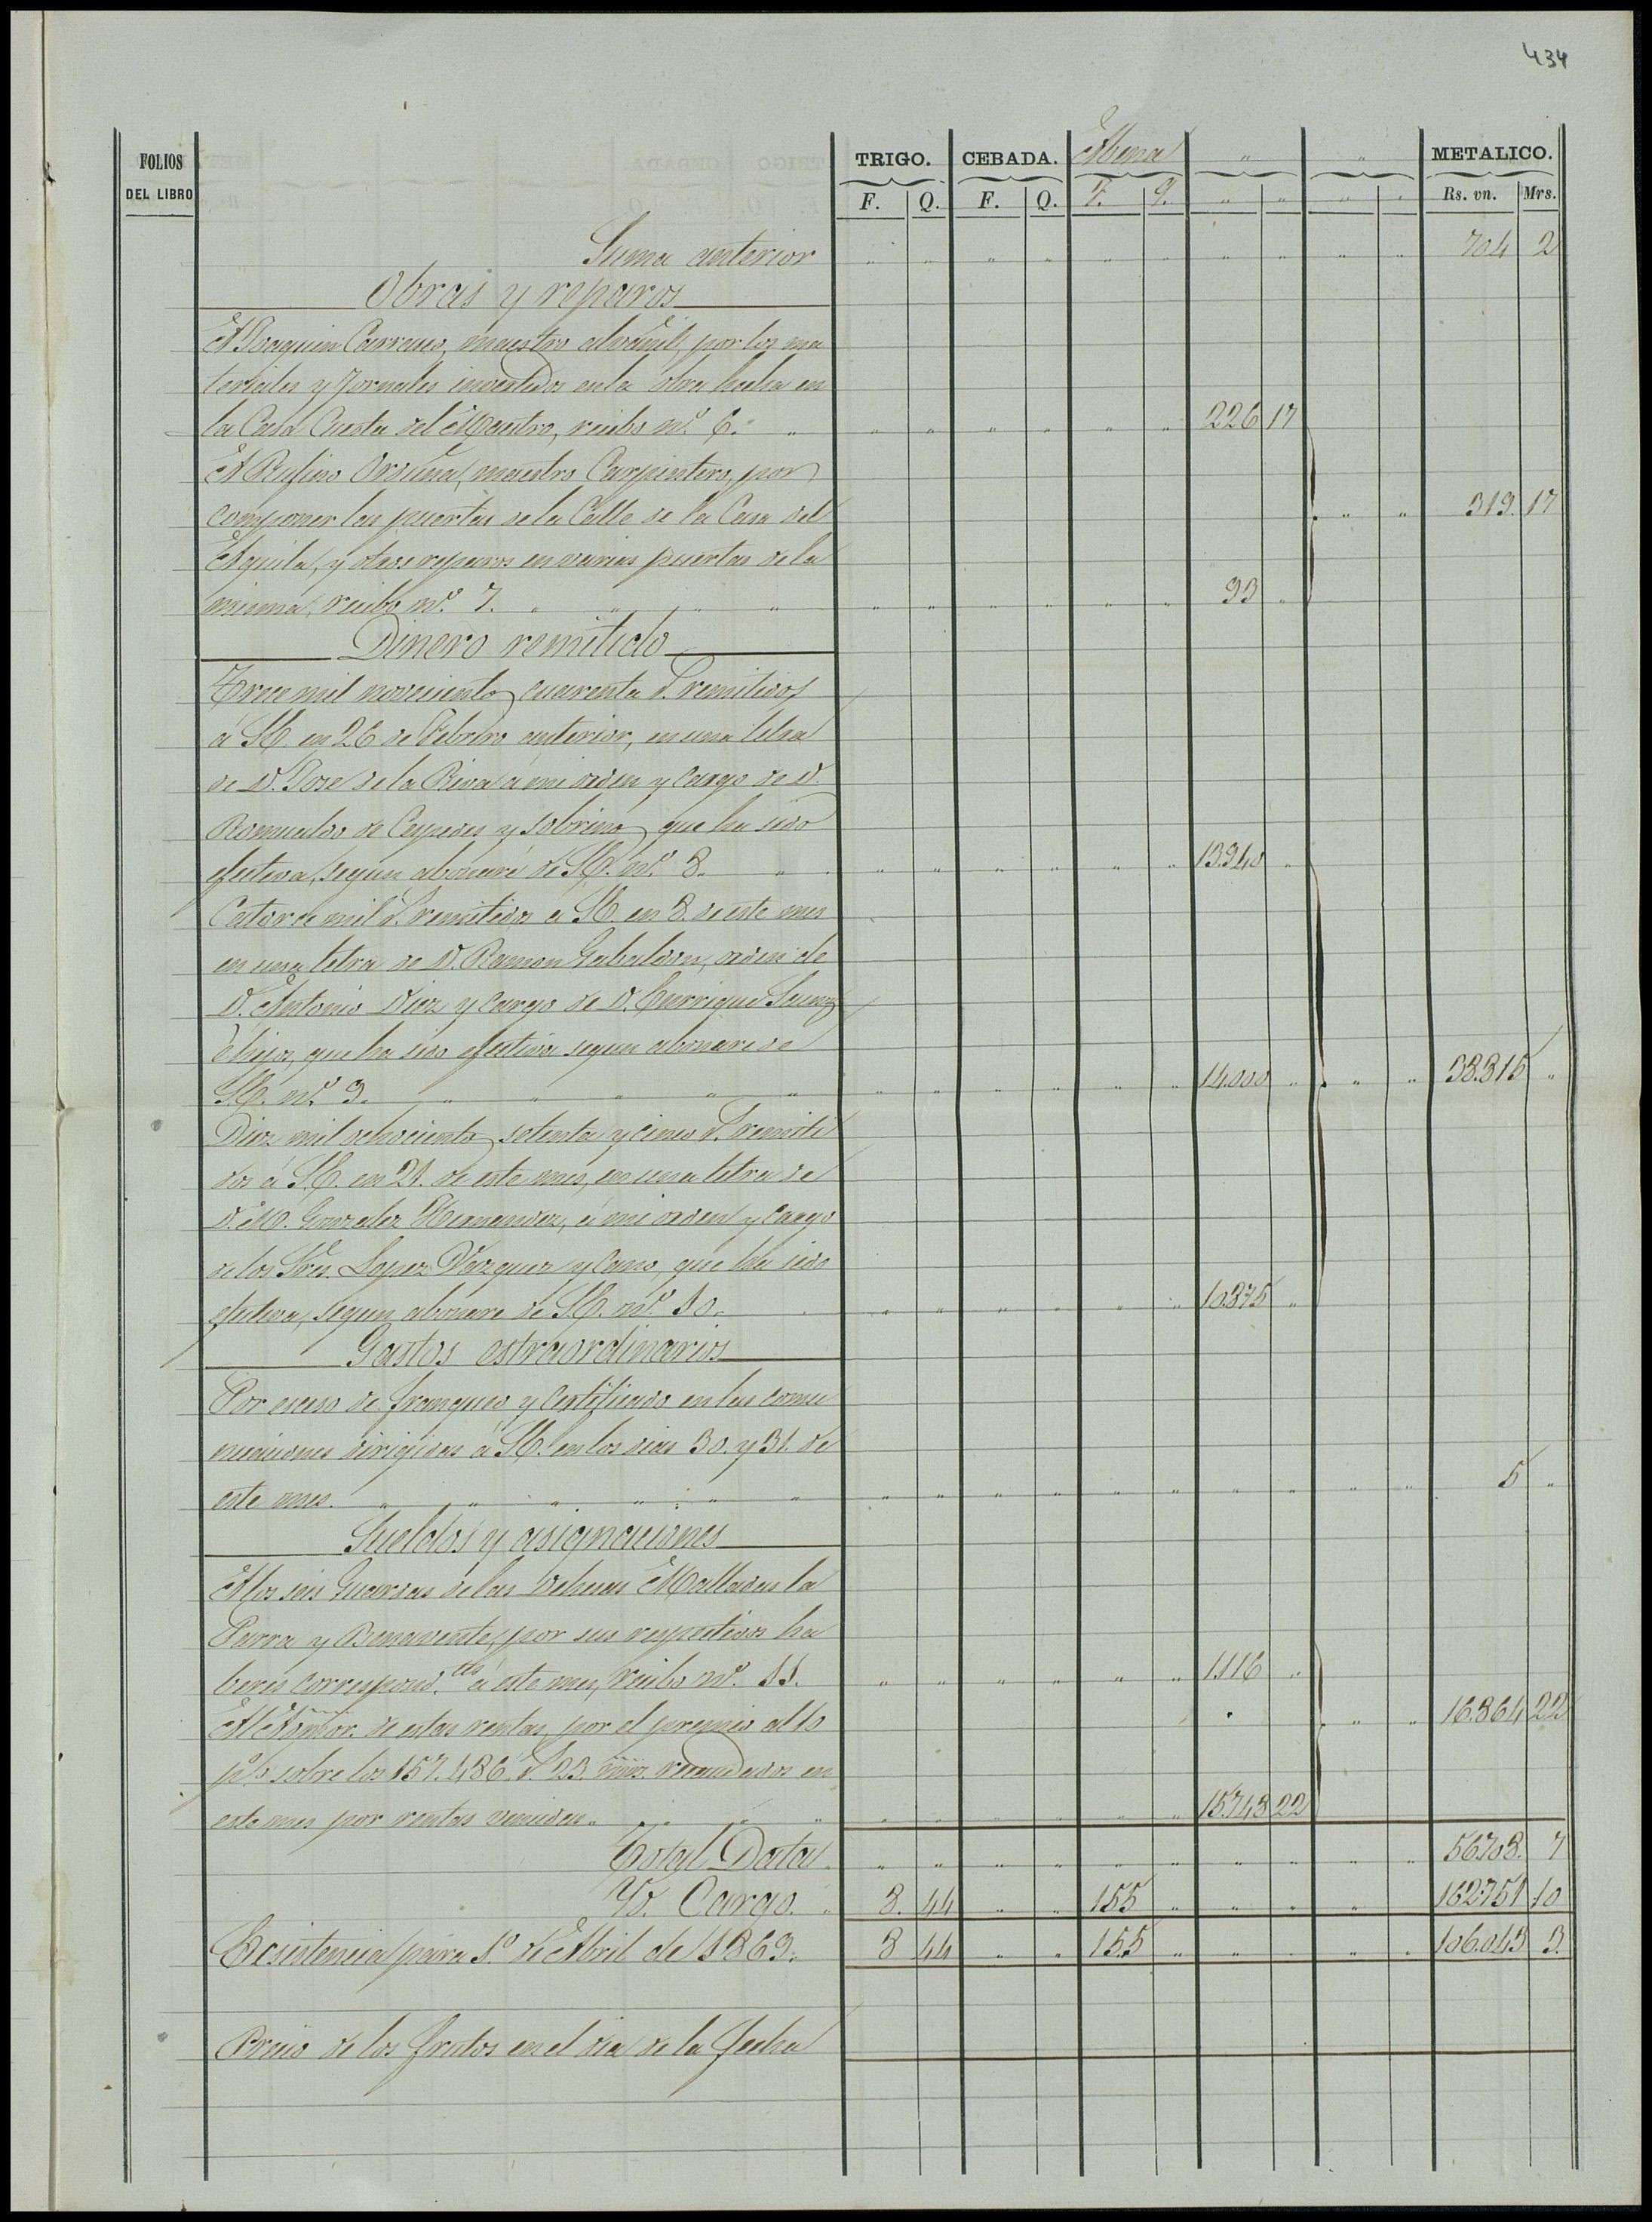 434
FOLIOS DEL LIBRO
TRIGO. CEBADA. Abena " " METALICO.
F. Q. F. Q. F. Q. " " " " Rs. vn. Mrs.
Suma anterior " " " " " " " " " " 704 2
Obras y reparos
A Joaquin Carrasco, maestro albañil, por los ma
teriales y Jornales invertidos en la obra hecha en
la Casa Cuesta del Maestro, recibo nº 6. " " " " " " " 226 17
A Rufino Orduña, maestro Carpintero, por
componer las puertas de la Calle de la Casa del " " 319. 17
Aguila, y otros reparos en varias puertas de la
misma, recibo nº 7. " " " " " " " " " " 93 "
Dinero remitido
Trece mil novecientos cuarenta r. remitidos
á S.E. en 26 de Febrero anterior, en una letra
de D. Jose de la Riva á mi orden y cargo de D.
Romualdo de Cespedes y sobrino, que ha sido
efectiva, segun abonaré de S.E. nº 8. " " " " " " " 13.940 "
Catorce mil r. remitidos a S.E. en 8. de este mes
en una letra de D. Ramon Gabaldon, orden de
D. Antonio Diez y cargo de D. Enrique
é hijos, que ha sido efectiva segun abonare de
S.E. nº 9. " " " " " " " " " " " 14.000 " " " 38.815 "
Diez mil ochocientos setenta y cinco r. remiti
dos á S.E. en 21. de este mes, en una letra de
D. M. Gonzalez Hernandez, á mi orden y cargo
de los Sres. Lopez Vazquez y Cano, que ha sido
efectiva, segun abonare de S.E. nº 10. " " " " " " 10.875 "
Gastos estraordinarios
Por esceso de franqueo y Certificado en las comu
nicaciones dirigidas á S.E. en los dias 30. y 31. de
este mes. " " " " " " " " " " " " " " " " 5 "
Sueldos y asignaciones
A los seis Guardas de las Dehesas Malladas la
Parra y Benavente, por sus respectivos ha
beres correspond.tes á este mes, recibo nº 11. " " " " " " 1.116 "
Al Admor. de estas rentas, por el premio al 10 " " 16.864 22
p% sobre los 157.436. r. 23. mrs. recaudados en
este mes por rentas vencidas. " " " " " " " " 15.743 22
Total Data. " " " " " " " " " " 56.708. 7
Yd. Cargo. " 8. 44 " " 155 " " " " 162.751 10
Ecsistencia para 1º de Abril de 1869. 8 44 " " 155 " " " " " 106.043 3
Precio de los frutos en el dia de la fecha